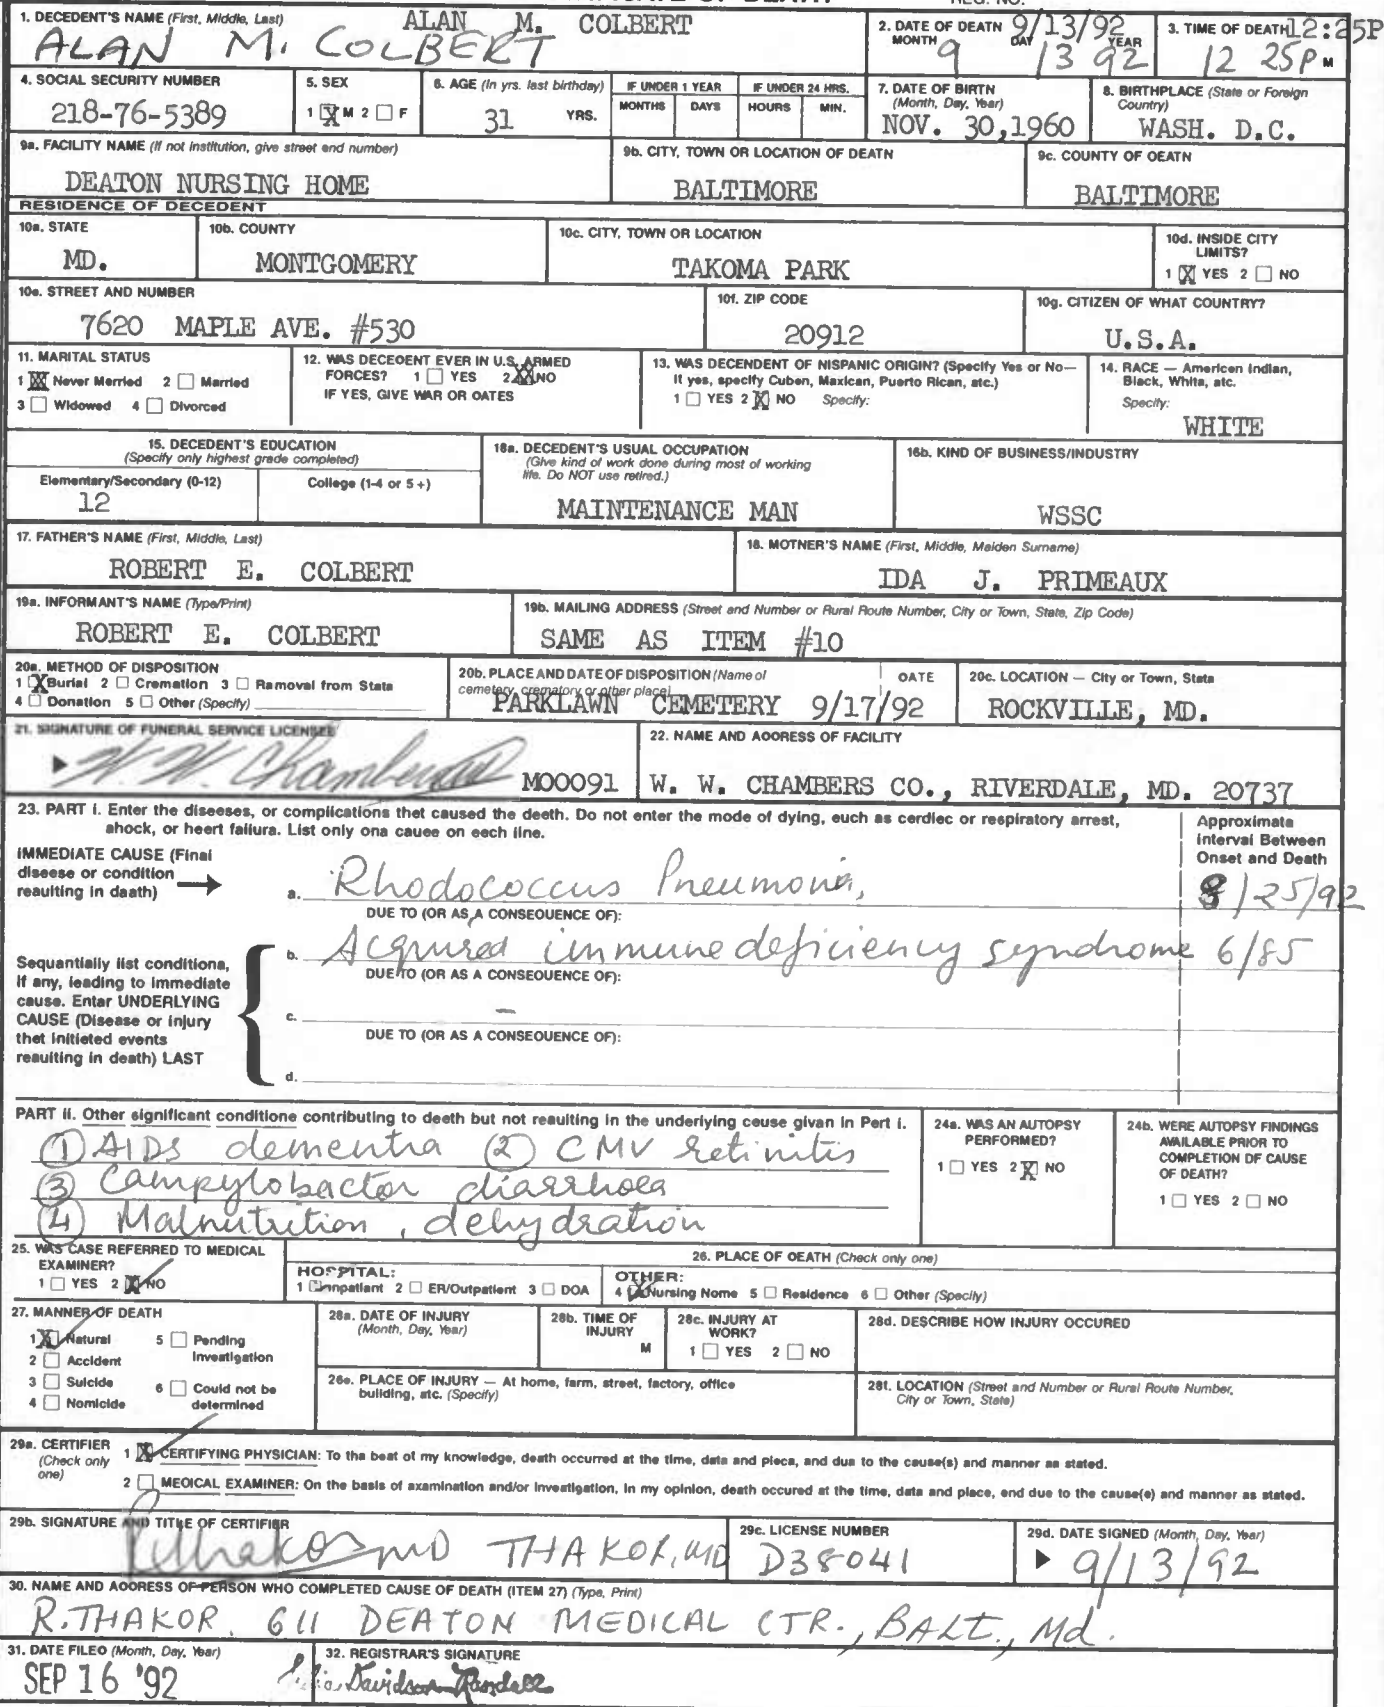 ALAN M. COLBERT
1. DECEDENT'S NAME (First, Middle, Last)
ALAN M. COLBERT
2. DATE OF DEATH 9/13/92
MONTH DAY YEAR
9 13 92
3. TIME OF DEATH 12:25P
12 25P M
4. SOCIAL SECURITY NUMBER
218-76-5389
5. SEX
1 ☒ M 2 ☐ F
6. AGE (In yrs. last birthday)
31 YRS.
IF UNDER 1 YEAR
MONTHS DAYS
IF UNDER 24 HRS.
HOURS MIN.
7. DATE OF BIRTH
(Month, Day, Year)
NOV. 30,1960
8. BIRTHPLACE (State or Foreign
Country)
WASH. D.C.
9a. FACILITY NAME (If not institution, give street and number)
DEATON NURSING HOME
9b. CITY, TOWN OR LOCATION OF DEATH
BALTIMORE
9c. COUNTY OF DEATH
BALTIMORE
RESIDENCE OF DECEDENT
10a. STATE
MD.
10b. COUNTY
MONTGOMERY
10c. CITY, TOWN OR LOCATION
TAKOMA PARK
10d. INSIDE CITY
LIMITS?
1 ☒ YES 2 ☐ NO
10e. STREET AND NUMBER
7620 MAPLE AVE. #530
10f. ZIP CODE
20912
10g. CITIZEN OF WHAT COUNTRY?
U.S.A.
11. MARITAL STATUS
1 ☒ Never Married 2 ☐ Married
3 ☐ Widowed 4 ☐ Divorced
12. WAS DECEDENT EVER IN U.S. ARMED
FORCES? 1 ☐ YES 2 ☒ NO
IF YES, GIVE WAR OR DATES
13. WAS DECENDENT OF HISPANIC ORIGIN? (Specify Yes or No—
If yes, specify Cuban, Mexican, Puerto Rican, etc.)
1 ☐ YES 2 ☒ NO Specify:
14. RACE — American Indian,
Black, White, etc.
Specify:
WHITE
15. DECEDENT'S EDUCATION
(Specify only highest grade completed)
Elementary/Secondary (0-12)
12
College (1-4 or 5+)
16a. DECEDENT'S USUAL OCCUPATION
(Give kind of work done during most of working
life. Do NOT use retired.)
MAINTENANCE MAN
16b. KIND OF BUSINESS/INDUSTRY
WSSC
17. FATHER'S NAME (First, Middle, Last)
ROBERT E. COLBERT
18. MOTHER'S NAME (First, Middle, Maiden Surname)
IDA J. PRIMEAUX
19a. INFORMANT'S NAME (Type/Print)
ROBERT E. COLBERT
19b. MAILING ADDRESS (Street and Number or Rural Route Number, City or Town, State, Zip Code)
SAME AS ITEM #10
20a. METHOD OF DISPOSITION
1 ☒ Burial 2 ☐ Cremation 3 ☐ Removal from State
4 ☐ Donation 5 ☐ Other (Specify)
20b. PLACE AND DATE OF DISPOSITION (Name of
cemetery, crematory or other place)
DATE
PARKLAWN CEMETERY 9/17/92
20c. LOCATION — City or Town, State
ROCKVILLE, MD.
21. SIGNATURE OF FUNERAL SERVICE LICENSEE
W. W. Chambers
M00091
22. NAME AND ADDRESS OF FACILITY
W. W. CHAMBERS CO., RIVERDALE, MD. 20737
23. PART I. Enter the diseases, or complications that caused the death. Do not enter the mode of dying, such as cardiac or respiratory arrest,
shock, or heart failure. List only one cause on each line.
Approximate
Interval Between
Onset and Death
IMMEDIATE CAUSE (Final
disease or condition
resulting in death)
a. Rhodococcus Pneumonia, 8/25/92
DUE TO (OR AS A CONSEQUENCE OF):
b. Acquired immune deficiency syndrome 6/85
DUE TO (OR AS A CONSEQUENCE OF):
Sequentially list conditions,
if any, leading to immediate
cause. Enter UNDERLYING
CAUSE (Disease or injury
that initiated events
resulting in death) LAST
c. –
DUE TO (OR AS A CONSEQUENCE OF):
d.
PART II. Other significant conditions contributing to death but not resulting in the underlying cause given in Part I.
① AIDS dementia ② CMV retinitis
③ Campylobacter diarrhoea
④ Malnutrition, dehydration
24a. WAS AN AUTOPSY
PERFORMED?
1 ☐ YES 2 ☒ NO
24b. WERE AUTOPSY FINDINGS
AVAILABLE PRIOR TO
COMPLETION OF CAUSE
OF DEATH?
1 ☐ YES 2 ☐ NO
25. WAS CASE REFERRED TO MEDICAL
EXAMINER?
1 ☐ YES 2 ☒ NO
26. PLACE OF DEATH (Check only one)
HOSPITAL:
1 ☐ Inpatient 2 ☐ ER/Outpatient 3 ☐ DOA
OTHER:
4 ☒ Nursing Home 5 ☐ Residence 6 ☐ Other (Specify)
27. MANNER OF DEATH
1 ☒ Natural 5 ☐ Pending
Investigation
2 ☐ Accident
3 ☐ Suicide 6 ☐ Could not be
determined
4 ☐ Homicide
28a. DATE OF INJURY
(Month, Day, Year)
28b. TIME OF
INJURY
M
28c. INJURY AT
WORK?
1 ☐ YES 2 ☐ NO
28d. DESCRIBE HOW INJURY OCCURED
28e. PLACE OF INJURY — At home, farm, street, factory, office
building, etc. (Specify)
28f. LOCATION (Street and Number or Rural Route Number,
City or Town, State)
29a. CERTIFIER
(Check only
one)
1 ☒ CERTIFYING PHYSICIAN: To the best of my knowledge, death occurred at the time, date and place, and due to the cause(s) and manner as stated.
2 ☐ MEDICAL EXAMINER: On the basis of examination and/or investigation, in my opinion, death occured at the time, date and place, and due to the cause(s) and manner as stated.
29b. SIGNATURE AND TITLE OF CERTIFIER
RThakor MD THAKOR, MD
29c. LICENSE NUMBER
D38041
29d. DATE SIGNED (Month, Day, Year)
9/13/92
30. NAME AND ADDRESS OF PERSON WHO COMPLETED CAUSE OF DEATH (ITEM 27) (Type, Print)
R. THAKOR, 611 DEATON MEDICAL CTR., BALT., Md.
31. DATE FILED (Month, Day, Year)
SEP 16 '92
32. REGISTRAR'S SIGNATURE
Julia Davidson-Randall